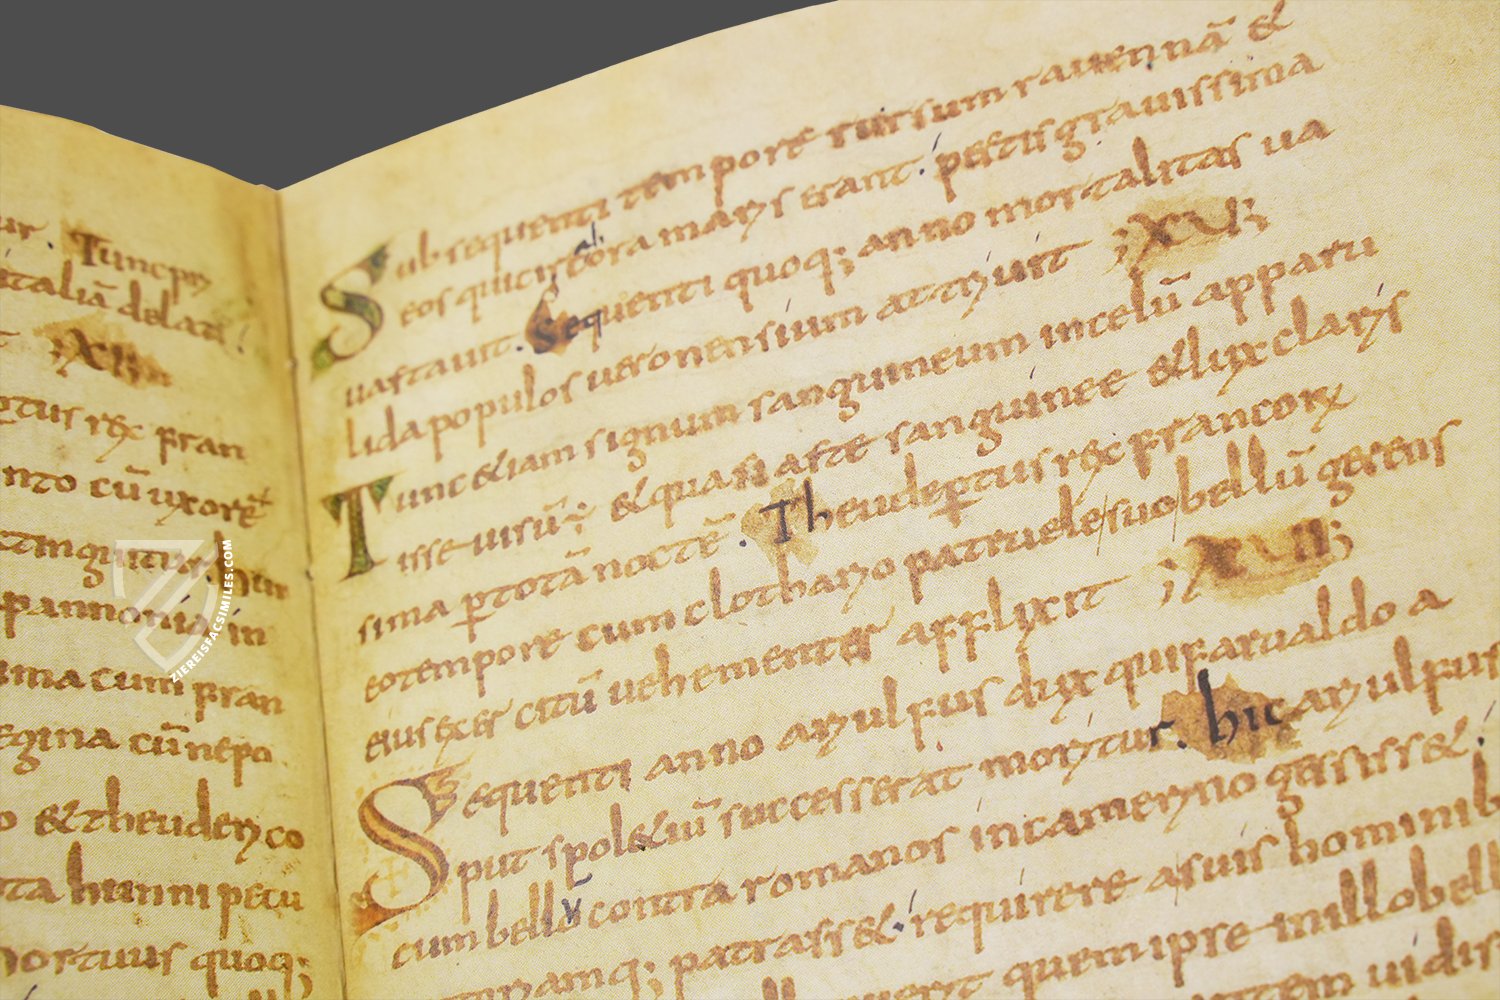 ur. Tuncpri
italiā delati
XII
rex fran
nto cū uxorē
ctinguitur, hun
pannonia, in
cum fran
regina cū nepo
o & theuderico
ta hunni petu
mortuus quoq;
Subsequenti tempore rursum rauennā &
eos qui circa ora maris erant. pestis grauissima
uastauit. Sequenti quoq; anno mortalitas ua
lida populos ueronensium attriuit ;XVI;
Tunc &iam signum sanguineum incelū apparu
isse uisū; & quasi aste sanguinee & lux claris
sima p totā noctē. Theudeptus rex francorꝝ
eo tempore cum clothario patruele suo bellū gerens
eius excercitū uehementer afflixit ;XVII;
Sequenti anno ariulfus dux qui farualdo a
put spol&iū successerat moritur. hic ariulfus
cum bellū contra romanos incamerino gessiss&,
patrass&, requirere asuis hominib
quem ipse inillo bell
uidis
ZIEREISFACSIMILES.COM